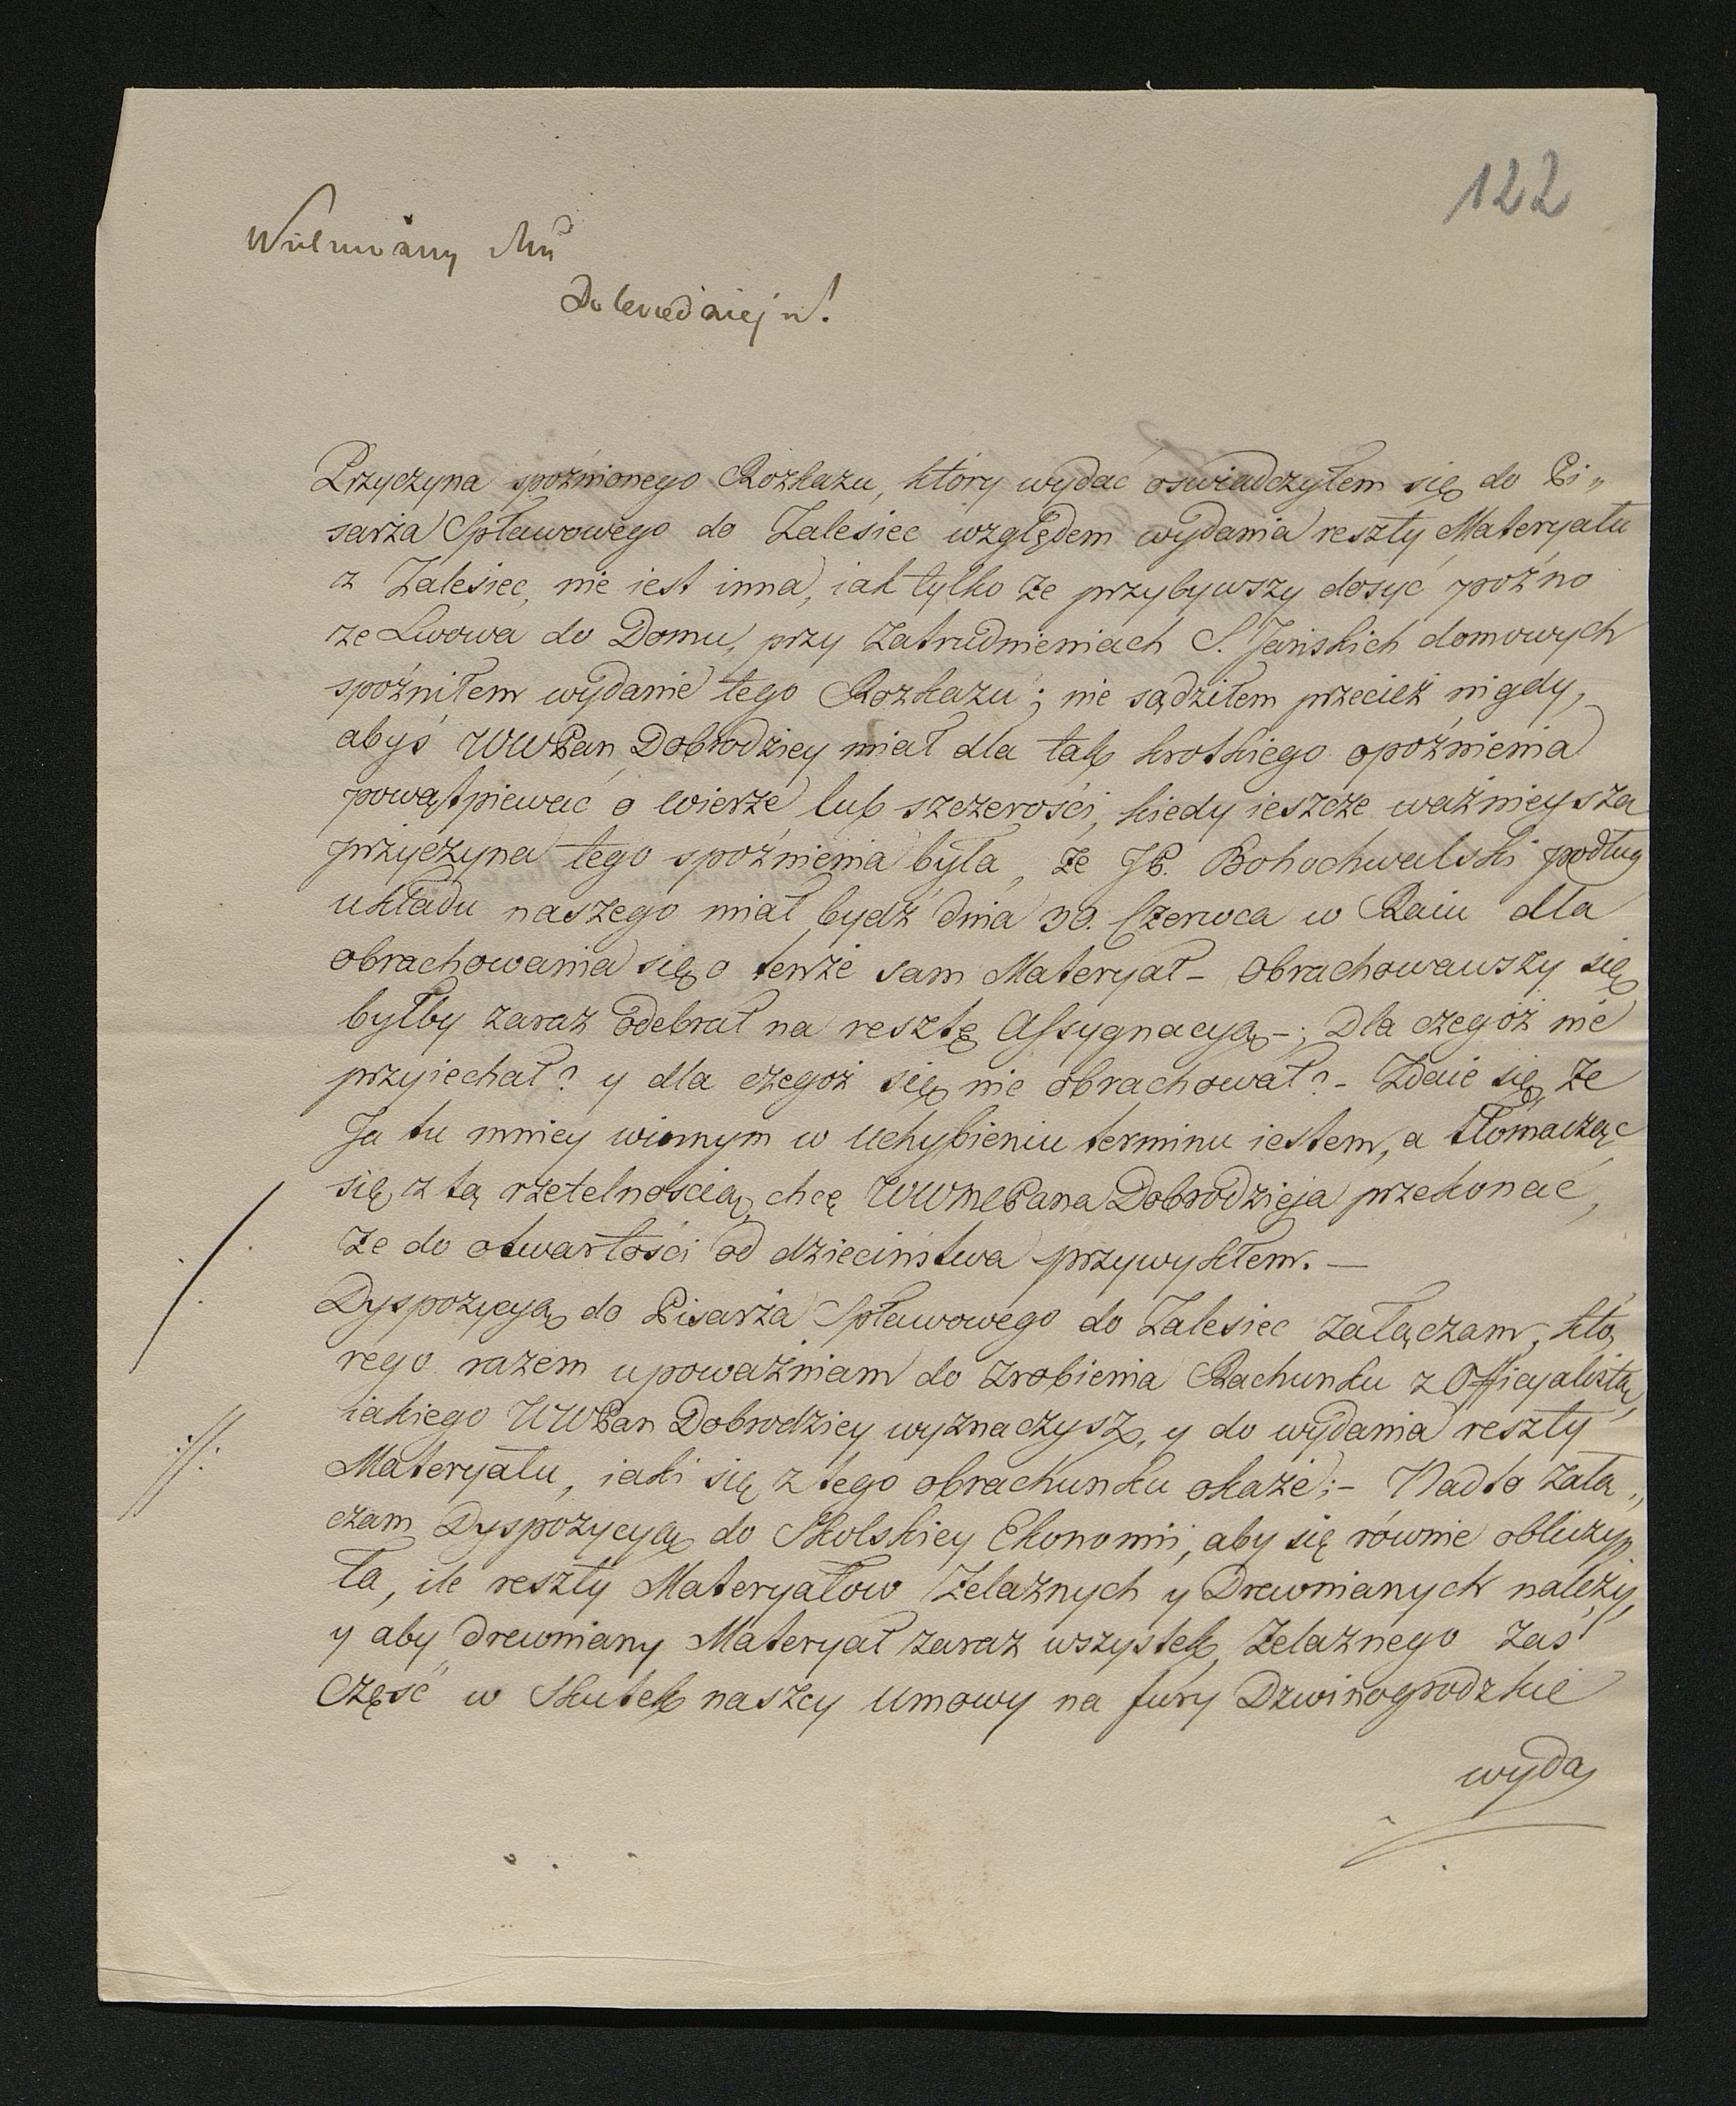 122
Wielmożny Mci
Dobrodzieju!
Przyczyna spoźnionego Rozkazu, który wydać oświadczyłem się do Pi„
sarza Spławowego do Zalesiec względem wydania reszty Materyału
z Zalesiec, nie iest inna, iak tylko że przybywszy dosyć poźno
ze Lwowa do Domu, przy zatrudnieniach S. Jańskich domowych
spoźniłem wydanie tego Rozkazu; nie sądziłem przecież nigdy,
abyś WWPan Dobrodziey miał dla tak krotkiego opoźnienia
powątpiewać o wierze lub szczerości, kiedy ieszcze ważnieysza
przyczyna tego spoźnienia była, że JP. Bohochwalski podług
układu naszego miał bydź dnia 30. Czerwca w Raiu dla
obrachowania się o tenże sam Materyał – obrachowawszy się
byłby zaraz odebrał na resztę Assygnacyą –; Dla czegóż nie
przyiechał? y dla czegoż się nie obrachował? – Zdaie się, że
Ja tu mniey winnym w uchybieniu terminu iestem, a tłómacząc
się z tą rzetelnością, chcę WWMPana Dobrodzieja przekonać,
że do otwartości od dzieciństwa przywykłem. —
Dyspozycyą do Pisarza Spławowego do Zalesiec załączam, któ„
rego razem upoważniam do zrobienia Rachunku z Officyalistą,
iakiego WWPan Dobrodziey wyznaczysz, y do wydania reszty
Materyału, iaki się z tego obrachunku okaże; – Nadto załą„
czam Dyspozycyą do Skolskiey Ekonomii, aby się równie obliczy„
ła, ile reszty Materyałow Żelaznych y Drewnianych należy,
y aby drewniany Materyał zaraz wszystek, żelaznego zaś
Część w skutek naszey umowy na fury Dzwinogrodzkie
wyda,